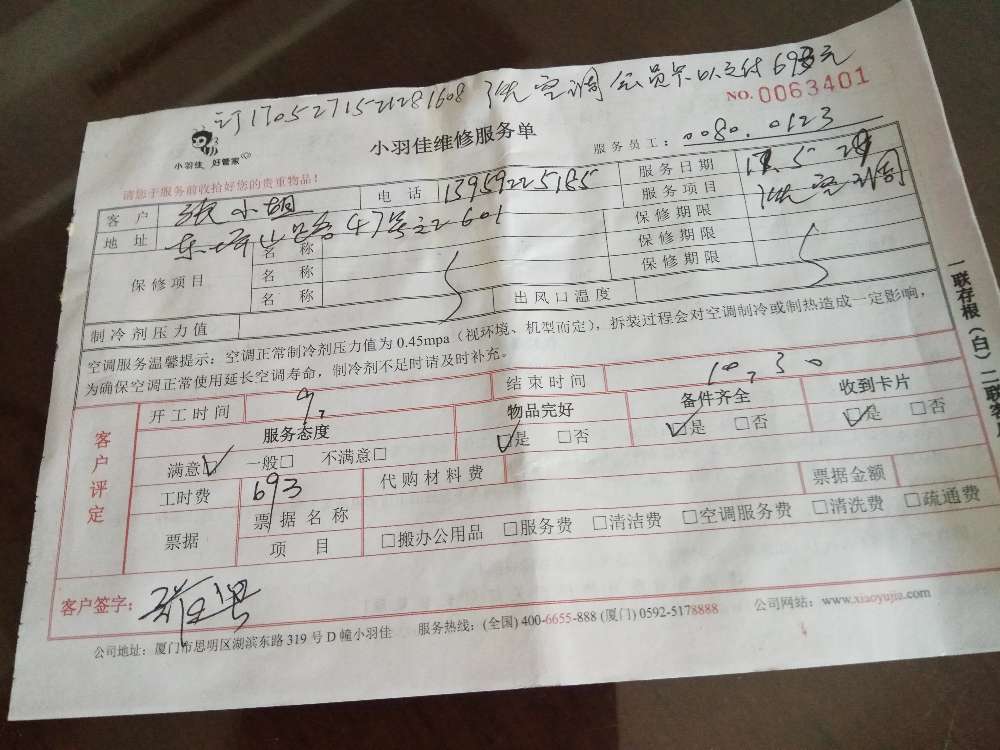 订170527152128 1608 洗空调 会员卡以支付693元
NO. 0063401
小羽佳 好管家
小羽佳维修服务单
服务员工： 0080. 0123
请您于服务前收拾好您的贵重物品！
客 户 张小姐 电 话 13959225185 服务日期 17.5.29
地 址 47号之2 601 服务项目 洗空调
保修项目 名 称 保修期限
名 称 保修期限
名 称 保修期限
制冷剂压力值 出风口温度
空调服务温馨提示：空调正常制冷剂压力值为 0.45mpa（视环境、机型而定），拆装过程会对空调制冷或制热造成一定影响，
为确保空调正常使用延长空调寿命，制冷剂不足时请及时补充。
客户评定
开工时间 9: 结束时间 10:30
服务态度 物品完好 备件齐全 收到卡片
满意☑ 一般□ 不满意□ ☑是 □否 ☑是 □否 ☑是 □否
工时费 693 代购材料费
票据 票据名称 票据金额
项 目 □搬办公用品 □服务费 □清洁费 □空调服务费 □清洗费 □疏通费
客户签字：
公司地址：厦门市思明区湖滨东路 319 号 D 幢小羽佳 服务热线：(全国) 400-6655-888 (厦门) 0592-5178888 公司网站：www.xiaoyujia.com
一联存根（白）二联客